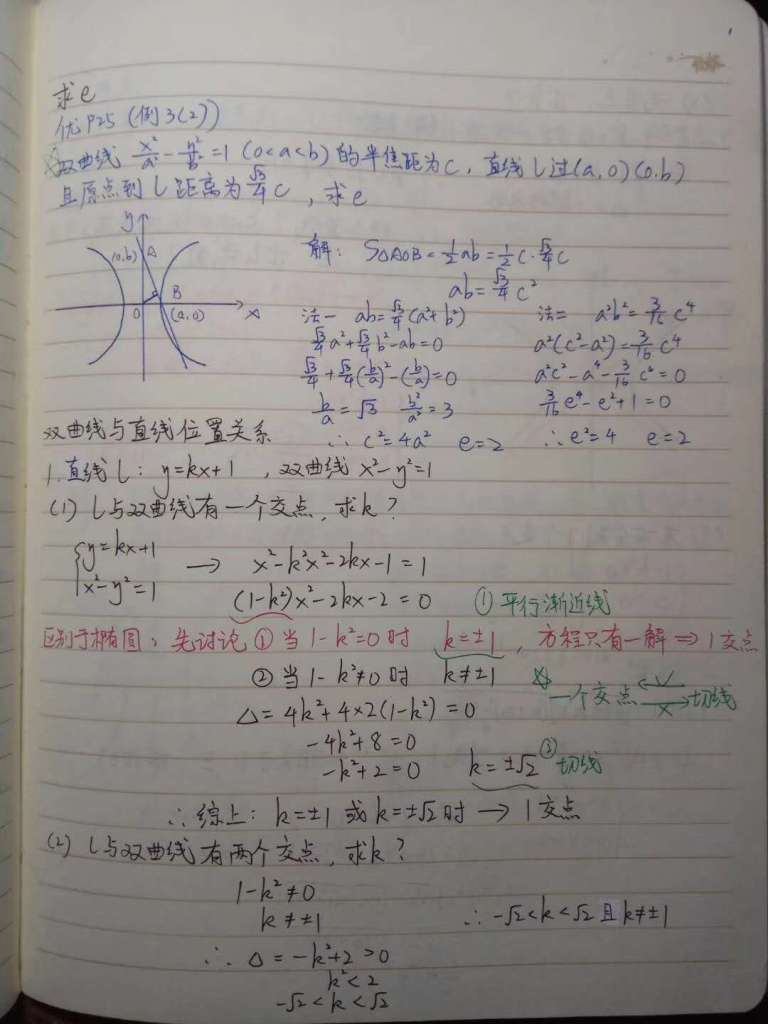 求e
优P25 (例3(2))
双曲线 x²/a² - y²/b² =1 (0<a<b) 的半焦距为c，直线l过(a,0)(0,b)
且原点到l距离为 √3/4 c，求e
y
(0,b) A
O B
(a,0) x
解: S△AOB = 1/2 ab = 1/2 c·√3/4 c
ab = √3/4 c²
法一 ab = √3/4 (a²+b²)
√3/4 a² + √3/4 b² - ab = 0
√3/4 + √3/4 (b/a)² - (b/a) = 0
b/a = √3 b²/a² = 3
∴ c² = 4a² e = 2
法二 a²b² = 3/16 c⁴
a²(c²-a²) = 3/16 c⁴
a²c² - a⁴ - 3/16 c⁴ = 0
3/16 e⁴ - e² + 1 = 0
∴ e² = 4 e = 2
双曲线与直线位置关系
1. 直线l: y=kx+1 ，双曲线 x²-y²=1
(1) l与双曲线有一个交点，求k?
{y=kx+1
x²-y²=1
→ x²-k²x²-2kx-1=1
(1-k²)x²-2kx-2=0 ① 平行渐近线
区别于椭圆: 先讨论 ① 当1-k²=0时 k=±1，方程只有一解 ⇒ 1交点
② 当1-k²≠0时 k≠±1 ☆ 一个交点 ←√ →× 切线
△=4k²+4×2(1-k²)=0
-4k²+8=0
-k²+2=0 k=±√2 ② 切线
∴综上: k=±1 或 k=±√2时 → 1交点
(2) l与双曲线有两个交点，求k?
1-k²≠0
k≠±1 ∴ -√2<k<√2 且 k≠±1
∴ △=-k²+2>0
k²<2
-√2<k<√2